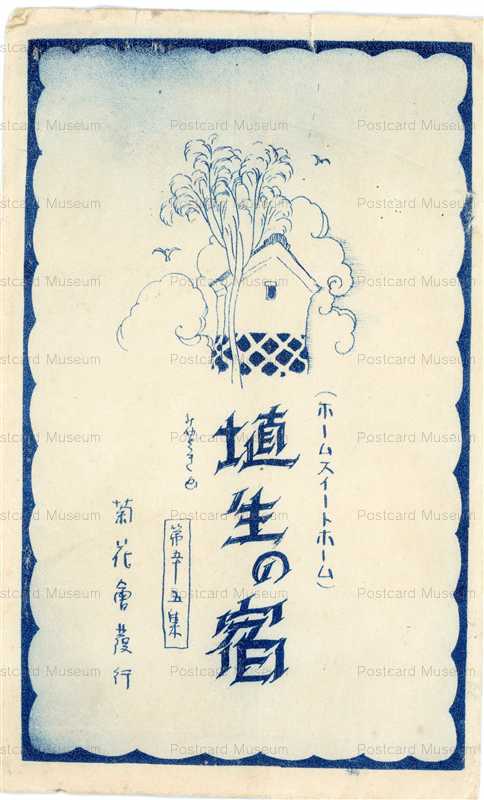 (ホームスイートホーム)
埴生の宿
第五十五集
菊花會發行
Postcard Museum